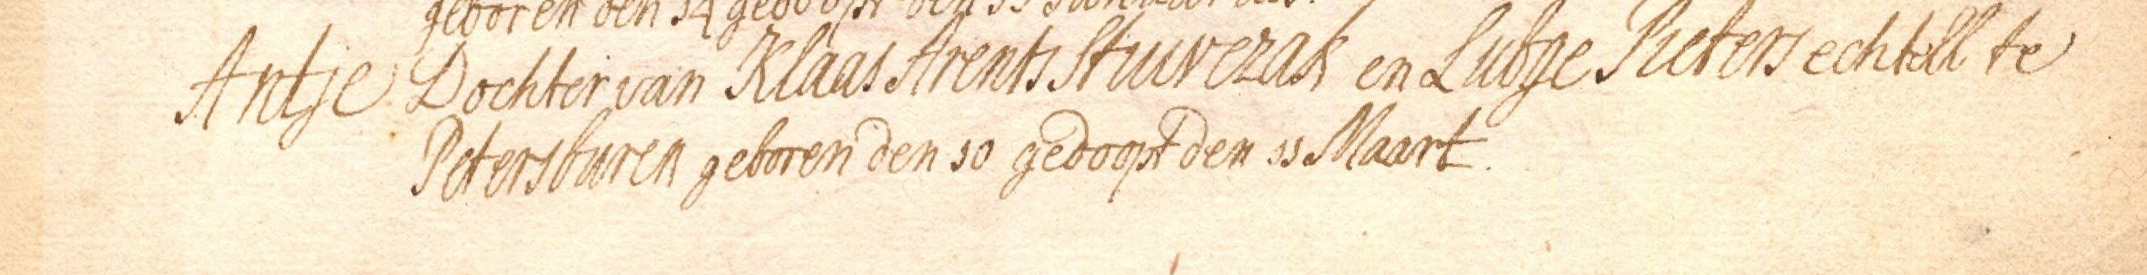 geboren den 14 gedoopt den 15 Januarius.
Antje Dochter van Klaas Arents Stuivezak en Lubje Pieters echtell te
Petersburen geboren den 10 gedoopt den 11 Maart.